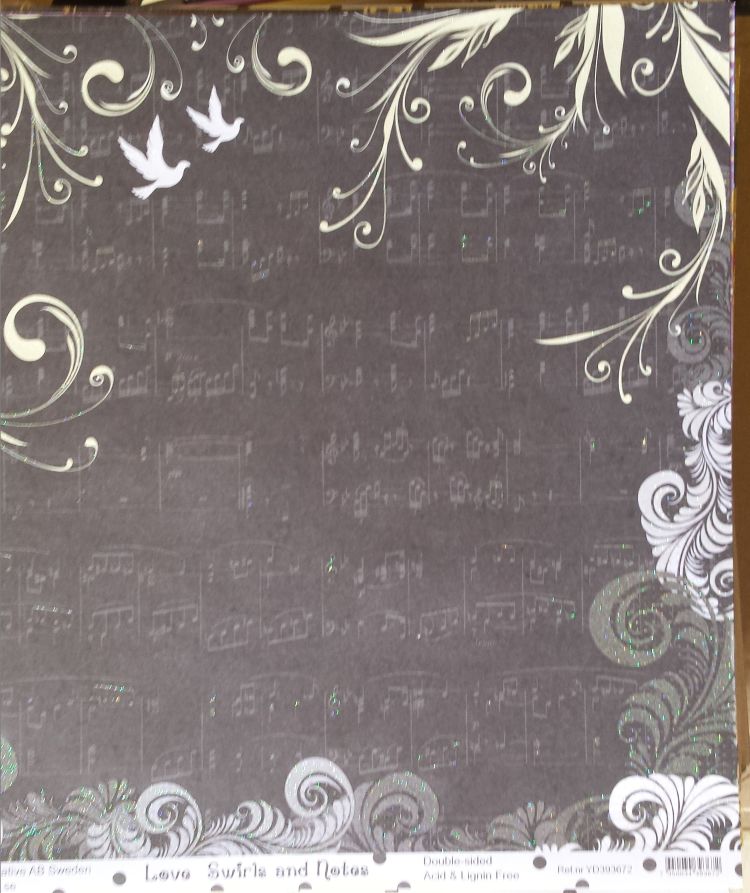 ative AB Sweden
se
Love Swirls and Notes
Double-sided
Acid & Lignin Free
Ref.nr YD393672